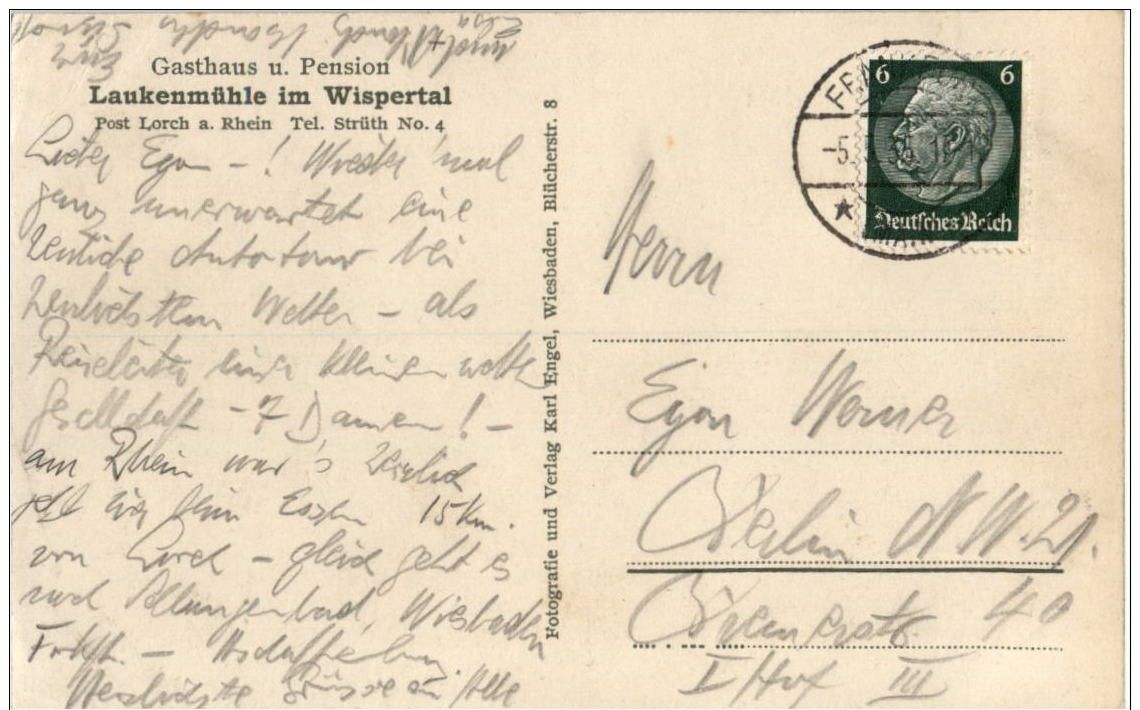 Gasthaus u. Pension
Laukenmühle im Wispertal
Post Lorch a. Rhein Tel. Strüth No. 4
Lieber Egon – ! Wieder 'mal
ganz unerwartet eine
Autotour bei
Wetter – als
Reiseleiter einer kleinen netten
Gesellschaft – 7 Damen! –
am Rhein war's herrlich
jetzt beim Essen 15 km.
von Lorch – gleich geht es
nach Schlangenbad, Wiesbaden
Frkft. – Aschaffenburg.
Herzlichste Grüsse an Alle
Fotografie und Verlag Karl Engel, Wiesbaden, Blücherstr. 8
6 6
Deutsches Reich
Herrn
Egon Werner
Berlin N.W. 21.
40
I Hof III